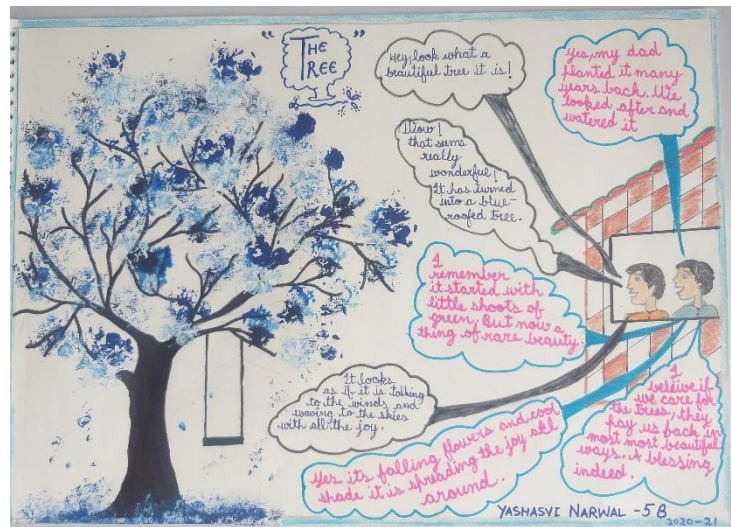 "THE
TREE"
Hey, look what a
beautiful tree it is!
Yes, my dad
planted it many
years back. We
looked after and
watered it
Wow!
that sums
really
wonderful!
It has turned
into a blue-
roofed tree.
I
remember
it started with
little shoots of
green, But now a
thing of rare beauty.
It looks
as if it is talking
to the winds and
waving to the skies
with all the joy.
Yes its falling flowers and cool
shade it is spreading the joy all
around.
I
beleive if
we care for
the trees, they
pay us back in
most most beautiful
ways. A blessing
indeed.
YASHASVI NARWAL - 5B
2020-21